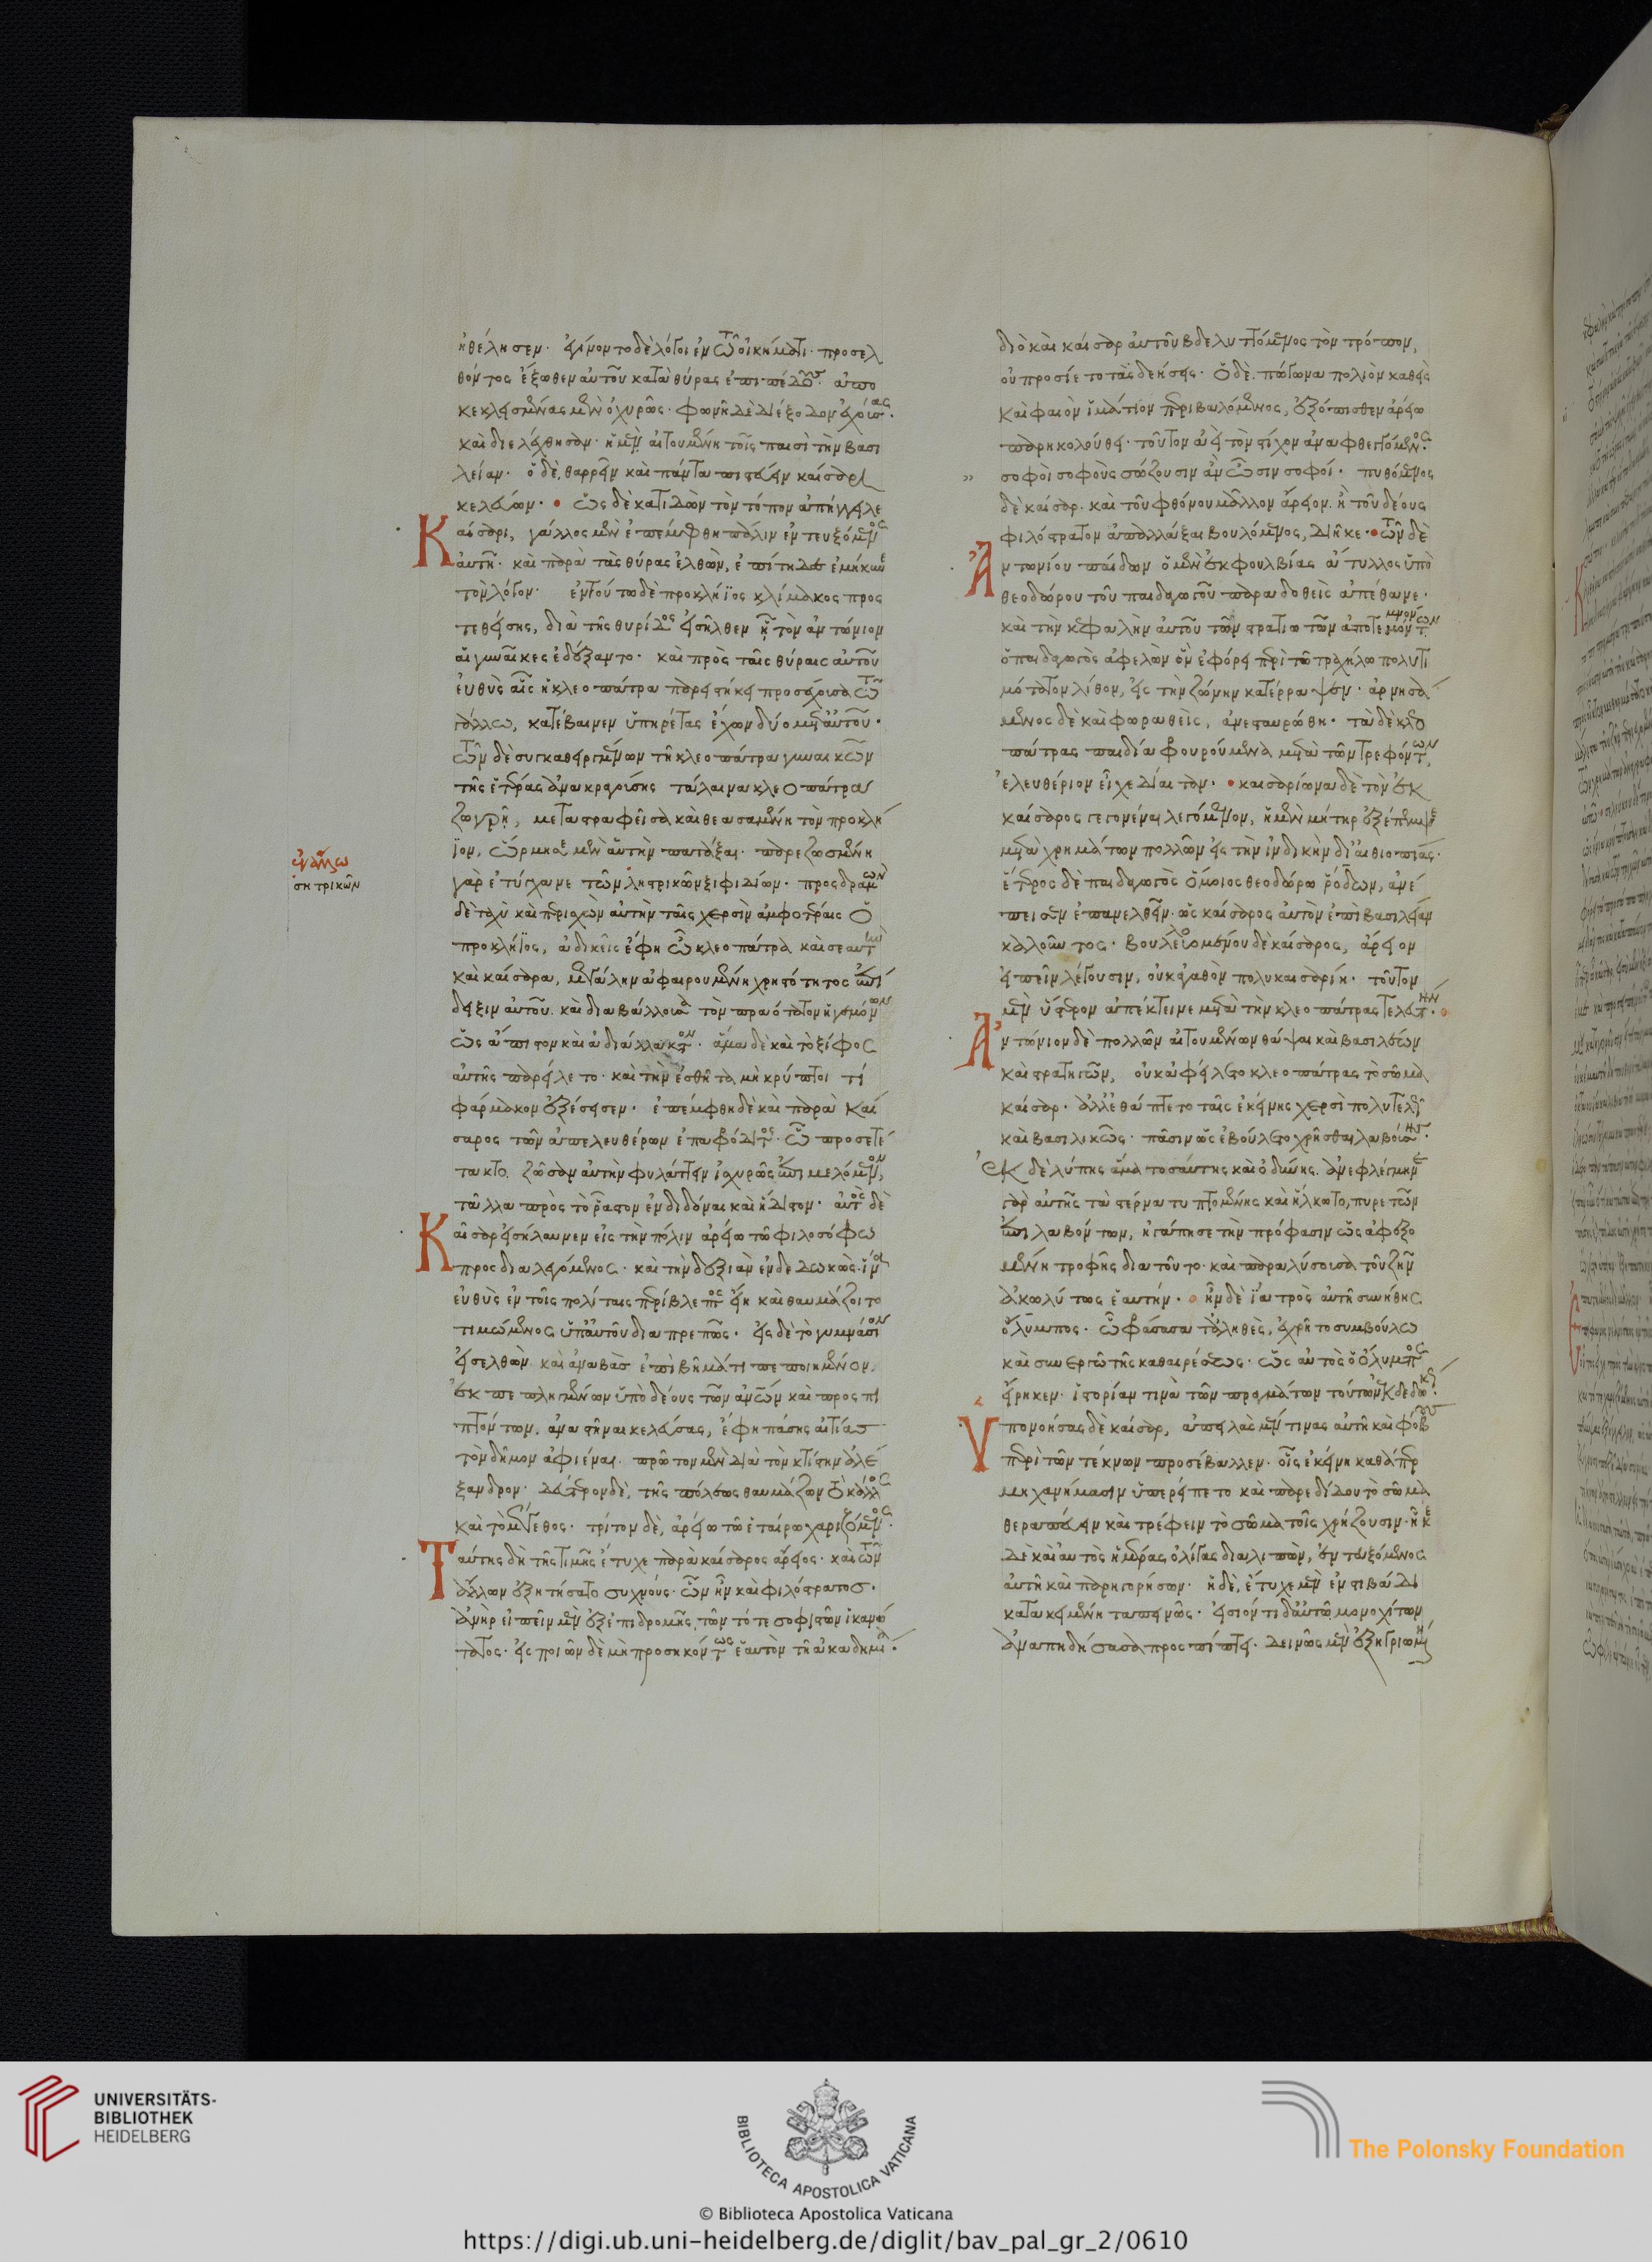 ἠθέλησεν· ἐγίνοντο δὲ λόγοι ἐν τῶ οἰκήματι· προσελ
θόντος ἔξωθεν αὐτοῦ κατὰ θύρας ἐπιπέδους· ἀπο
κεκλεισμένας μὲν ὀχυρῶς· φωνῆ δὲ διέξοδον ἐχούσας·
καὶ διελέχθησαν· ἡ μὲν αἰτουμένη τοῖς παισὶ τὴν βασι
λείαν· ὁ δὲ, θαρρεῖν καὶ πάντα πιστεύειν καίσαρι
κελεύων· ὡς δὲ κατιδὼν τὸν τόπον ἀπήγγειλε
Καίσαρι, γάλλος μὲν ἐπέμφθη πάλιν ἐντευξόμενος
αὐτῆ· καὶ παρὰ τὰς θύρας ἐλθὼν, ἐπίτηδες ἐμήκυνε
τὸν λόγον· ἐν τούτω δὲ προκλήϊος κλίμακος προς
τεθείσης, διὰ τῆς θυρίδος εἰσῆλθεν ἧ τὸν ἀντώνιον
αἱ γυναῖκες ἐδέξαντο· καὶ πρὸς ταῖς θύραις αὐτοῦ
εὐθὺς αἷς ἡ κλεοπάτρα παρειστήκει προσέχουσα τῶ
γάλλω, κατέβαινεν ὑπηρέτας ἔχων δύο μεθ αὑτοῦ·
τῶν δὲ συγκαθειργμένων τῆ κλεοπάτρα γυναικῶν
τῆς ἑτέρας ἀνακραγούσης τάλαινα κλεοπάτρα
ζωγρῆ, μεταστραφεῖσα καὶ θεασαμένη τὸν προκλή
ϊον, ὥρμησε μὲν αὑτὴν πατάξαι· παρεζωσμένη
γὰρ ἐτύγχανε τῶν ληστρικῶν ξιφιδίων· προςδραμὼν
δὲ ταχὺ καὶ περισχὼν αὐτὴν ταῖς χερσὶν ἀμφοτέραις ὁ
προκλήϊος, ἀδικεῖς ἔφη ὦ κλεοπάτρα καὶ σεαυτὴν
καὶ καίσαρα, μεγάλην ἀφαιρουμένη χρηστότητος ἐπί
δειξιν αὐτοῦ· καὶ διαβάλλουσα τὸν πραότατον ἡγεμόνων
ὡς ἄπιστον καὶ ἀδιάλλακτον· ἅμα δὲ καὶ τὸ ξίφος
αὐτῆς παρείλετο· καὶ τὴν ἐσθῆτα μὴ κρύπτοι τί
φάρμακον ἐξέσεισεν· ἐπέμφθη δὲ καὶ παρὰ καί
σαρος τῶν ἀπελευθέρων ἐπαφρόδιτος· ὧ προσετέ
τακτο, ζῶσαν αὐτὴν φυλάττειν ἰσχυρῶς ἐπιμελόμενον,
τἄλλα πρὸς τὸ ῥᾷστον ἐνδιδόναι καὶ ἥδιστον· αὐτὸς δὲ
Καῖσαρ εἰσήλαυνεν εἰς τὴν πόλιν ἀρείω τῶ φιλοσόφω
προςδιαλεγόμενος· καὶ τὴν δεξιὰν ἐνδεδωκὼς· ἵν
εὐθὺς ἐν τοῖς πολίταις περίβλεπτος εἴη καὶ θαυμάζοιτο
τιμώμενος ὑπ αὐτοῦ διαπρεπῶς· εἰς δὲ τὸ γυμνάσιον
εἰσελθὼν καὶ ἀναβὰς ἐπὶ βῆμά τι πεποιημένον,
ἐκπεπληγμένων ὑπὸ δέους τῶν ἀνθρώπων καὶ προςπι
πτόντων, ἀναστῆναι κελεύσας, ἔφη πάσης αἰτίας
τὸν δῆμον ἀφιέναι· πρῶτον μὲν διὰ τὸν κτίστην ἀλέ
ξανδρον· δεύτερον δὲ, τῆς πόλεως θαυμάζων τὸ κάλλος
καὶ τὸ μέγεθος· τρίτον δὲ, ἀρείω τῶ ἑταίρω χαριζόμενος·
Ταύτης δὴ τῆς τιμῆς ἔτυχε παρὰ καίσαρος ἄρειος· καὶ τῶν
ἄλλων ἐξητήσατο συχνούς· ὧν ἦν καὶ φιλόστρατος·
ἀνὴρ εἰπεῖν μὲν ἐξ ἐπιδρομῆς, τῶν τότε σοφιστῶν ἱκανώ
τατος· εἰςποιῶν δὲ μὴ προσηκόντως ἑαυτὸν τῆ ἀκαδημία·
ἐν ἄλλω
σητρικῶν
διὸ καὶ καίσαρ αὐτοῦ βδελυττόμενος τὸν τρόπον,
οὐ προσίετο τὰς δεήσεις· ὁ δὲ, πώγωνα πολιὸν καθεὶς
καὶ φαιὸν ἱμάτιον περιβαλόμενος, ἐξόπισθεν ἀρείω
παρηκολούθει· τοῦτον ἀεὶ τὸν στίχον ἀναφθεγγόμενος·
σοφοὶ σοφοὺς σώζουσιν ἂν ὦσιν σοφοί· πυθόμενος
δὲ καίσαρ· καὶ τοῦ φθόνου μᾶλλον ἄρειον· ἢ τοῦ δέους
φιλόστρατον ἀπαλλάξαι βουλόμενος, διῆκε· τῶν δὲ
Ἀντωνίου παίδων ὁ μὲν ἐκ φουλβίας ἄντυλλος ὑπὸ
θεοδώρου τοῦ παιδαγωγοῦ παραδοθεὶς ἀπέθανε·
καὶ τὴν κεφαλὴν αὐτοῦ τῶν στρατιωτῶν ἀποτεμνόντων
ὁ παιδαγωγὸς ἀφελὼν ὃν ἐφόρει περὶ τῶ τραχήλω πολυτι
μότατον λίθον, εἰς τὴν ζώνην κατέρραψεν· ἀρνησά
μενος δὲ καὶ φωραθεὶς, ἀνεσταυρώθη· τὰ δὲ κλεο
πάτρας παιδία φρουρούμενα μετὰ τῶν τρεφόντων,
ἐλευθέριον εἶχε δίαιταν· καισαρίωνα δὲ τὸν ἐκ
καίσαρος γεγονέναι λεγόμενον, ἡ μὲν μήτηρ ἐξέπεμψε
μετὰ χρημάτων πολλῶν εἰς τὴν ἰνδικὴν δι αἰθιοπίας·
ἕτερος δὲ παιδαγωγὸς ὅμοιος θεοδώρω ῥόδων, ἀνέ
πεισεν ἐπανελθεῖν· ὡς καίσαρος αὐτὸν ἐπὶ βασιλείαν
καλοῦντος· βουλευομένου δὲ καίσαρος, ἄρειον
εἰπεῖν λέγουσιν, οὐκ ἀγαθὸν πολυκαισαρίη· τοῦτον
μὲν ὕστερον ἀπέκτεινε μετὰ τὴν κλεοπάτρας τελευτήν·
Ἀντώνιον δὲ πολλῶν αἰτουμένων θάψαι καὶ βασιλέων
καὶ στρατηγῶν, οὐκ ἀφείλετο κλεοπάτρας τὸ σῶμα
καίσαρ· ἀλλ ἐθάπτετο ταῖς ἐκείνης χερσὶ πολυτελῶς
καὶ βασιλικῶς· πᾶσιν ὡς ἐβούλετο χρῆσθαι λαβούσης·
Ἐκ δὲ λύπης ἅμα τοσαύτης καὶ ὀδύνης· ἀνεφλέγμηνε
γὰρ αὐτῆς τὰ στέρνα τυπτομένης καὶ ἥλκωτο, πυρετῶν
ἐπιλαβόντων, ἠγάπησε τὴν πρόφασιν ὡς ἀφεξο
μένη τροφῆς διὰ τοῦτο· καὶ παραλύσουσα τοῦ ζῆν
ἀκωλύτως ἑαυτήν· ἦν δὲ ἰατρὸς αὐτῆ συνήθης
ὄλυμπος· ὧ φράσασα τἀληθὲς, ἐχρῆτο συμβούλω
καὶ συνεργῶ τῆς καθαιρέσεως· ὡς αὐτὸς ὁ ὄλυμπος
εἴρηκεν· ἱστορίαν τινὰ τῶν πραγμάτων τούτων ἐκδεδωκώς·
Ὑπονοήσας δὲ καίσαρ, ἀπειλὰς μέν τινας αὐτῆ καὶ φόβους
περὶ τῶν τέκνων προσέβαλλεν· οἷς ἐκείνη καθάπερ
μηχανήμασιν ὑπερείπετο καὶ παρεδίδου τὸ σῶμα
θεραπεύειν καὶ τρέφειν τὸ σῶμα τοῖς χρήζουσιν· ἧκε
δὲ καὶ αὐτὸς ἡμέρας ὀλίγας διαλιπὼν, ἐντευξόμενος
αὐτῆ καὶ παρηγορήσων· ἡ δὲ, ἔτυχε μὲν ἐν στιβάδι
κατακειμένη ταπεινῶς· εἰσιόντι δ αὐτῶ μονοχίτων
ἀναπηδήσασα προςπίπτει· δεινῶς μὲν ἐξηγριωμένη
UNIVERSITÄTS-
BIBLIOTHEK
HEIDELBERG
BIBLIOTECA APOSTOLICA VATICANA
The Polonsky Foundation
© Biblioteca Apostolica Vaticana
https://digi.ub.uni-heidelberg.de/diglit/bav_pal_gr_2/0610